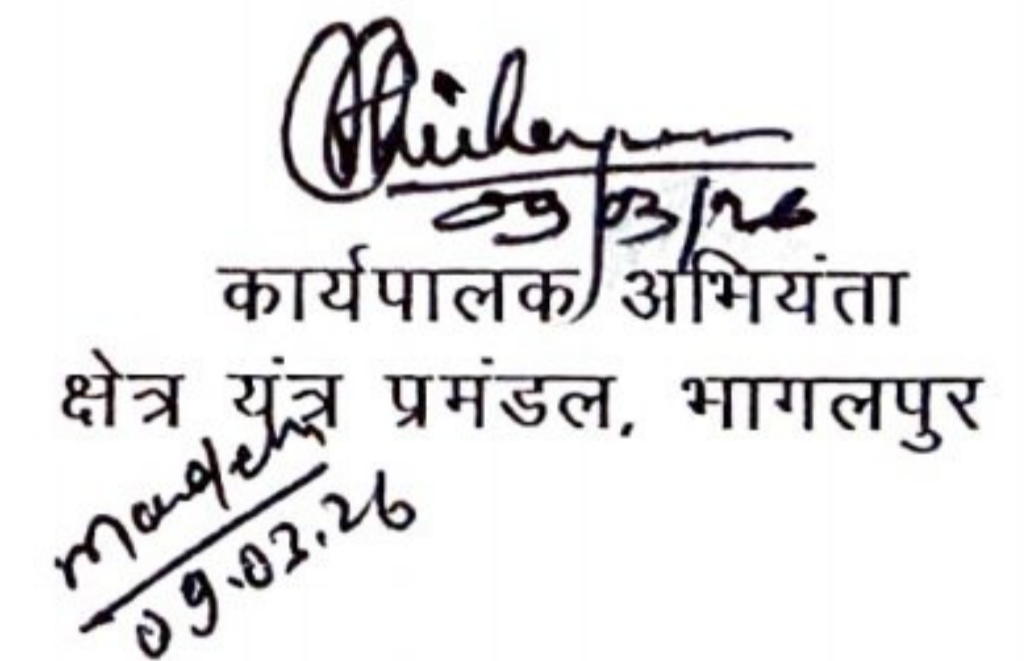 09/03/26
कार्यपालक अभियंता
क्षेत्र यंत्र प्रमंडल, भागलपुर
09.03.26